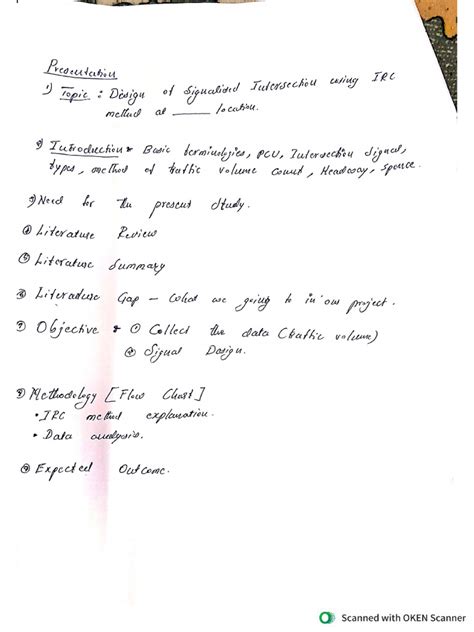 Presentation
1) Topic : Design of Signalised Intersection using IRC
method at _____ location.
2) Introduction : Basic terminologies, PCU, Intersection Signal,
types, method of traffic volume count, Headway, space.
3) Need for the present study.
4) Literature Review
5) Literature Summary
6) Literature Gap – What we going to in our project.
7) Objective : ① Collect the data (traffic volume)
② Signal Design.
8) Methodology [Flow Chart]
• IRC method explanation.
• Data analysis.
9) Expected Outcome.
Scanned with OKEN Scanner